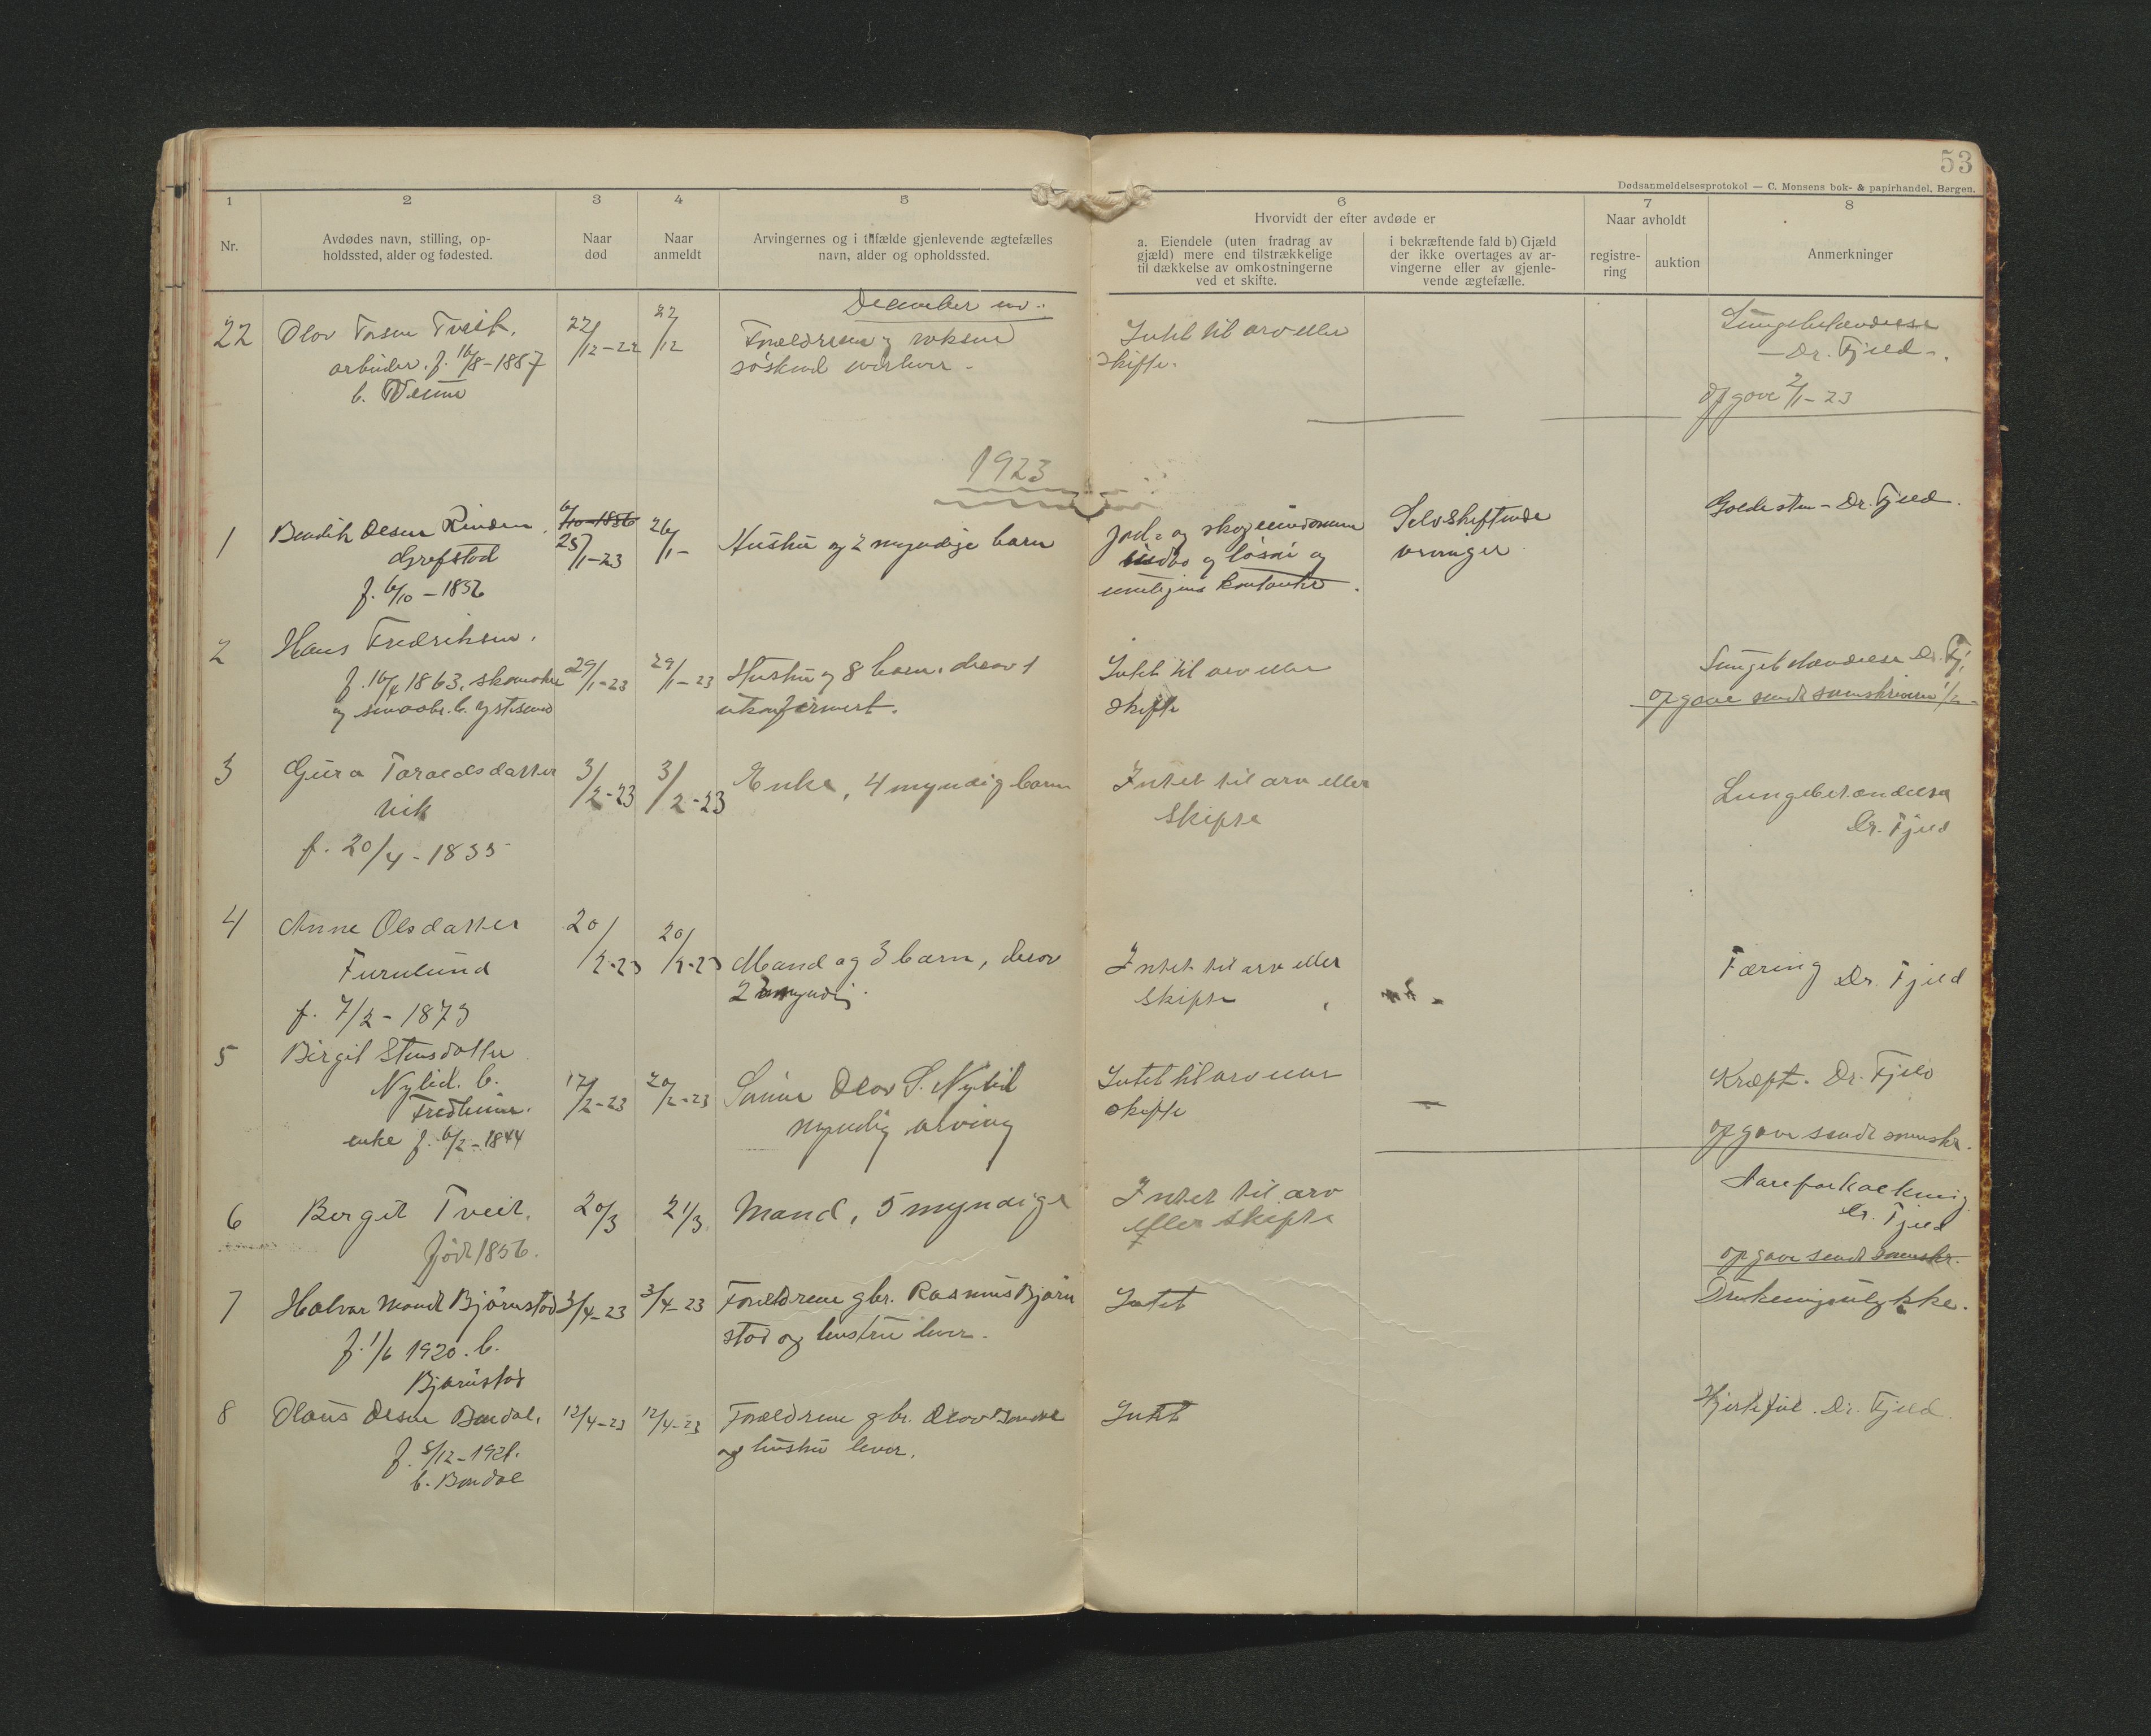 53
Dødsanmeldelsesprotokol — C. Monsens bok- & papirhandel, Bergen.
1 2 3 4 5 6 7 8
Nr.
Avdødes navn, stilling, op-
holdssted, alder og fødested.
Naar
død
Naar
anmeldt
Arvingernes og i tilfælde gjenlevende ægtefælles
navn, alder og opholdssted.
Hvorvidt der efter avdøde er
a. Eiendele (uten fradrag av
gjæld) mere end tilstrækkelige
til dækkelse av omkostningerne
ved et skifte.
i bekræftende fald b) Gjæld
der ikke overtages av ar-
vingerne eller av gjenle-
vende ægtefælle.
Naar avholdt
registre-
ring
auktion
Anmerkninger
December
22 Olov Tveit. 22/12-22 22/12 Forældrene og voksne Intet til arv eller Lungebetændelse
arbeider. f. 16/8-1887 søskend skifte. - Dr. Fjeld -.
b.
opgave 2/1-23
1923
1 Bendik Olsen Rinden. 6/10-1856 25/1-23 26/1- Hustru og 2 myndige barn Jord- og skogeiendomme Selvskiftende Galdesten - Dr. Fjeld.
Grefstad indbo og løsøre og arvinger
f. 6/10-1856 kontanter.
2 Hans Fredriksen. Lungebetændelse Dr. Fj.
f. 1863. skomaker 29/1-23 29/1-23 Hustru og 8 barn, derav 1 Intet til arv eller
og smaabr. b. ukonfirmert. skifte opgave sendt
3 Gura Taraldsdatter 3/2-23 3/2-23 Enke, 4 myndig barn Intet til arv eller Lungebetændelse
Vik skifte Dr. Fjeld
f. 20/4-1835
4 Anne Olsdatter 20/2-23 20/2-23 Mand og 3 barn, derov Intet til arv eller Tæring Dr. Fjeld
Furulund 2 myndig. skifte
f. 7/2-1873
5 Birgit Stensdatter
Nylid. b. 17/2-23 20/2-23 Sønne Olov S. Nylid Intet til arv eller — Kræft. Dr. Fjeld
Fredheim. myndig arving skifte
enke f. 6/2-1844 opgave sendt
6 Bergit Tveit. 20/3 21/3 Mand, 5 myndige Intet til arv Aareforkalkning
født 1856. eller skifte Dr. Fjeld
opgave sendt
7 Halvor Bjørnstad 3/4-23 3/4-23 Forældrene gbr. Rasmus Bjørn Intet Drukningsulykke.
f. 1/6 1920. b. stad og hustru lever.
Bjørnstad
8 Olaus Olsen Bondal. 12/4-23 12/4-23 Forældrene gbr. Olov Bondal Intet Hjertefeil. Dr. Fjeld.
f. 5/12-1921. og hustru lever.
b. Bondal